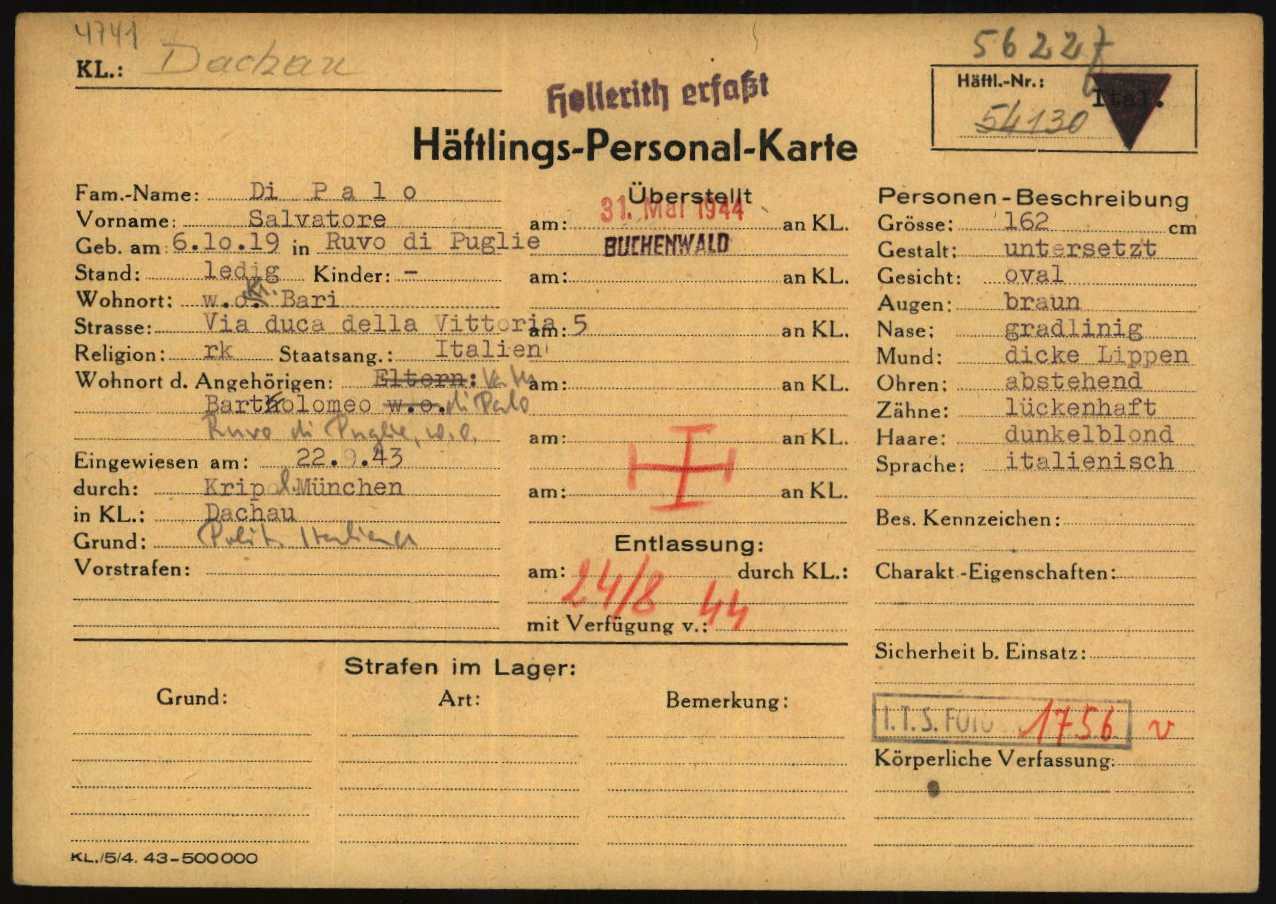 4741
KL.: Dachau
Hollerith erfaßt
56227
Häftl.-Nr.:
54130
Ital.
Häftlings-Personal-Karte
Fam.-Name: Di Palo
Vorname: Salvatore
Geb. am 6.10.19 in Ruvo di Puglie
Stand: ledig Kinder: -
Wohnort: w.o. Bari
Strasse: Via duca della Vittoria 5
Religion: rk Staatsang.: Italien
Wohnort d. Angehörigen: Eltern:
Bartholomeo w.o. di Palo
Ruvo di Puglie, w.o.
Eingewiesen am: 22.9.43
durch: Kripo München
in KL.: Dachau
Grund: Polit. Italiener
Vorstrafen:
Überstellt
31. Mai 1944
am: an KL.
BUCHENWALD
am: an KL.
am: an KL.
am: an KL.
am: an KL.
am: an KL.
Entlassung:
am: durch KL.:
24/8 44
mit Verfügung v.:
Personen-Beschreibung
Grösse: 162 cm
Gestalt: untersetzt
Gesicht: oval
Augen: braun
Nase: gradlinig
Mund: dicke Lippen
Ohren: abstehend
Zähne: lückenhaft
Haare: dunkelblond
Sprache: italienisch
Bes. Kennzeichen:
Charakt.-Eigenschaften:
Sicherheit b. Einsatz:
I.T.S. FOTO 1756 v
Körperliche Verfassung:
Strafen im Lager:
Grund: Art: Bemerkung:
KL./5/4. 43-500000